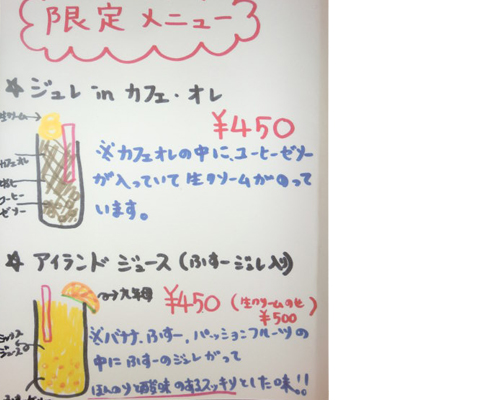 限定メニュー
☆ ジュレ in カフェ・オレ
¥450
生クリーム
カフェオレ
コーヒー
ゼリー
※カフェオレの中に、コーヒーゼリー
が入っていて生クリームがのって
います。
☆ アイランド ジュース (ふすージュレ入り)
¥450 (生クリームのせ)
¥500
※バナナ、ふすー、パッションフルーツの
中にふすーのジュレがって
ほんのりと酸味のあるスッキリとした味!!